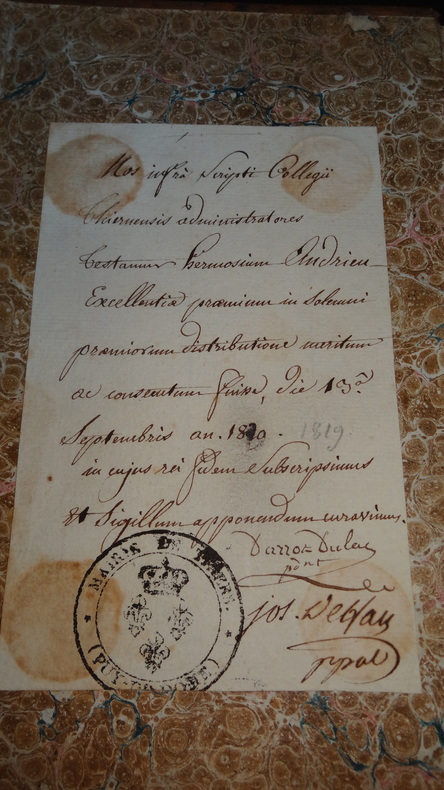 Nos infrà Scripti Collegii
Thiernensis administratores
testamur hermosium Andrieu
Excellentiæ præmium in Solemni
præmiorum distributione meritum
ac consecutum fuisse, die 13â
Septembris an. 1819. 1819
in cujus rei fidem Subscripsimus
Et Sigillum apponendum curavimus.
pnt
jos.
ppal
MAIRIE DE
(PUY-DE-DÔME)